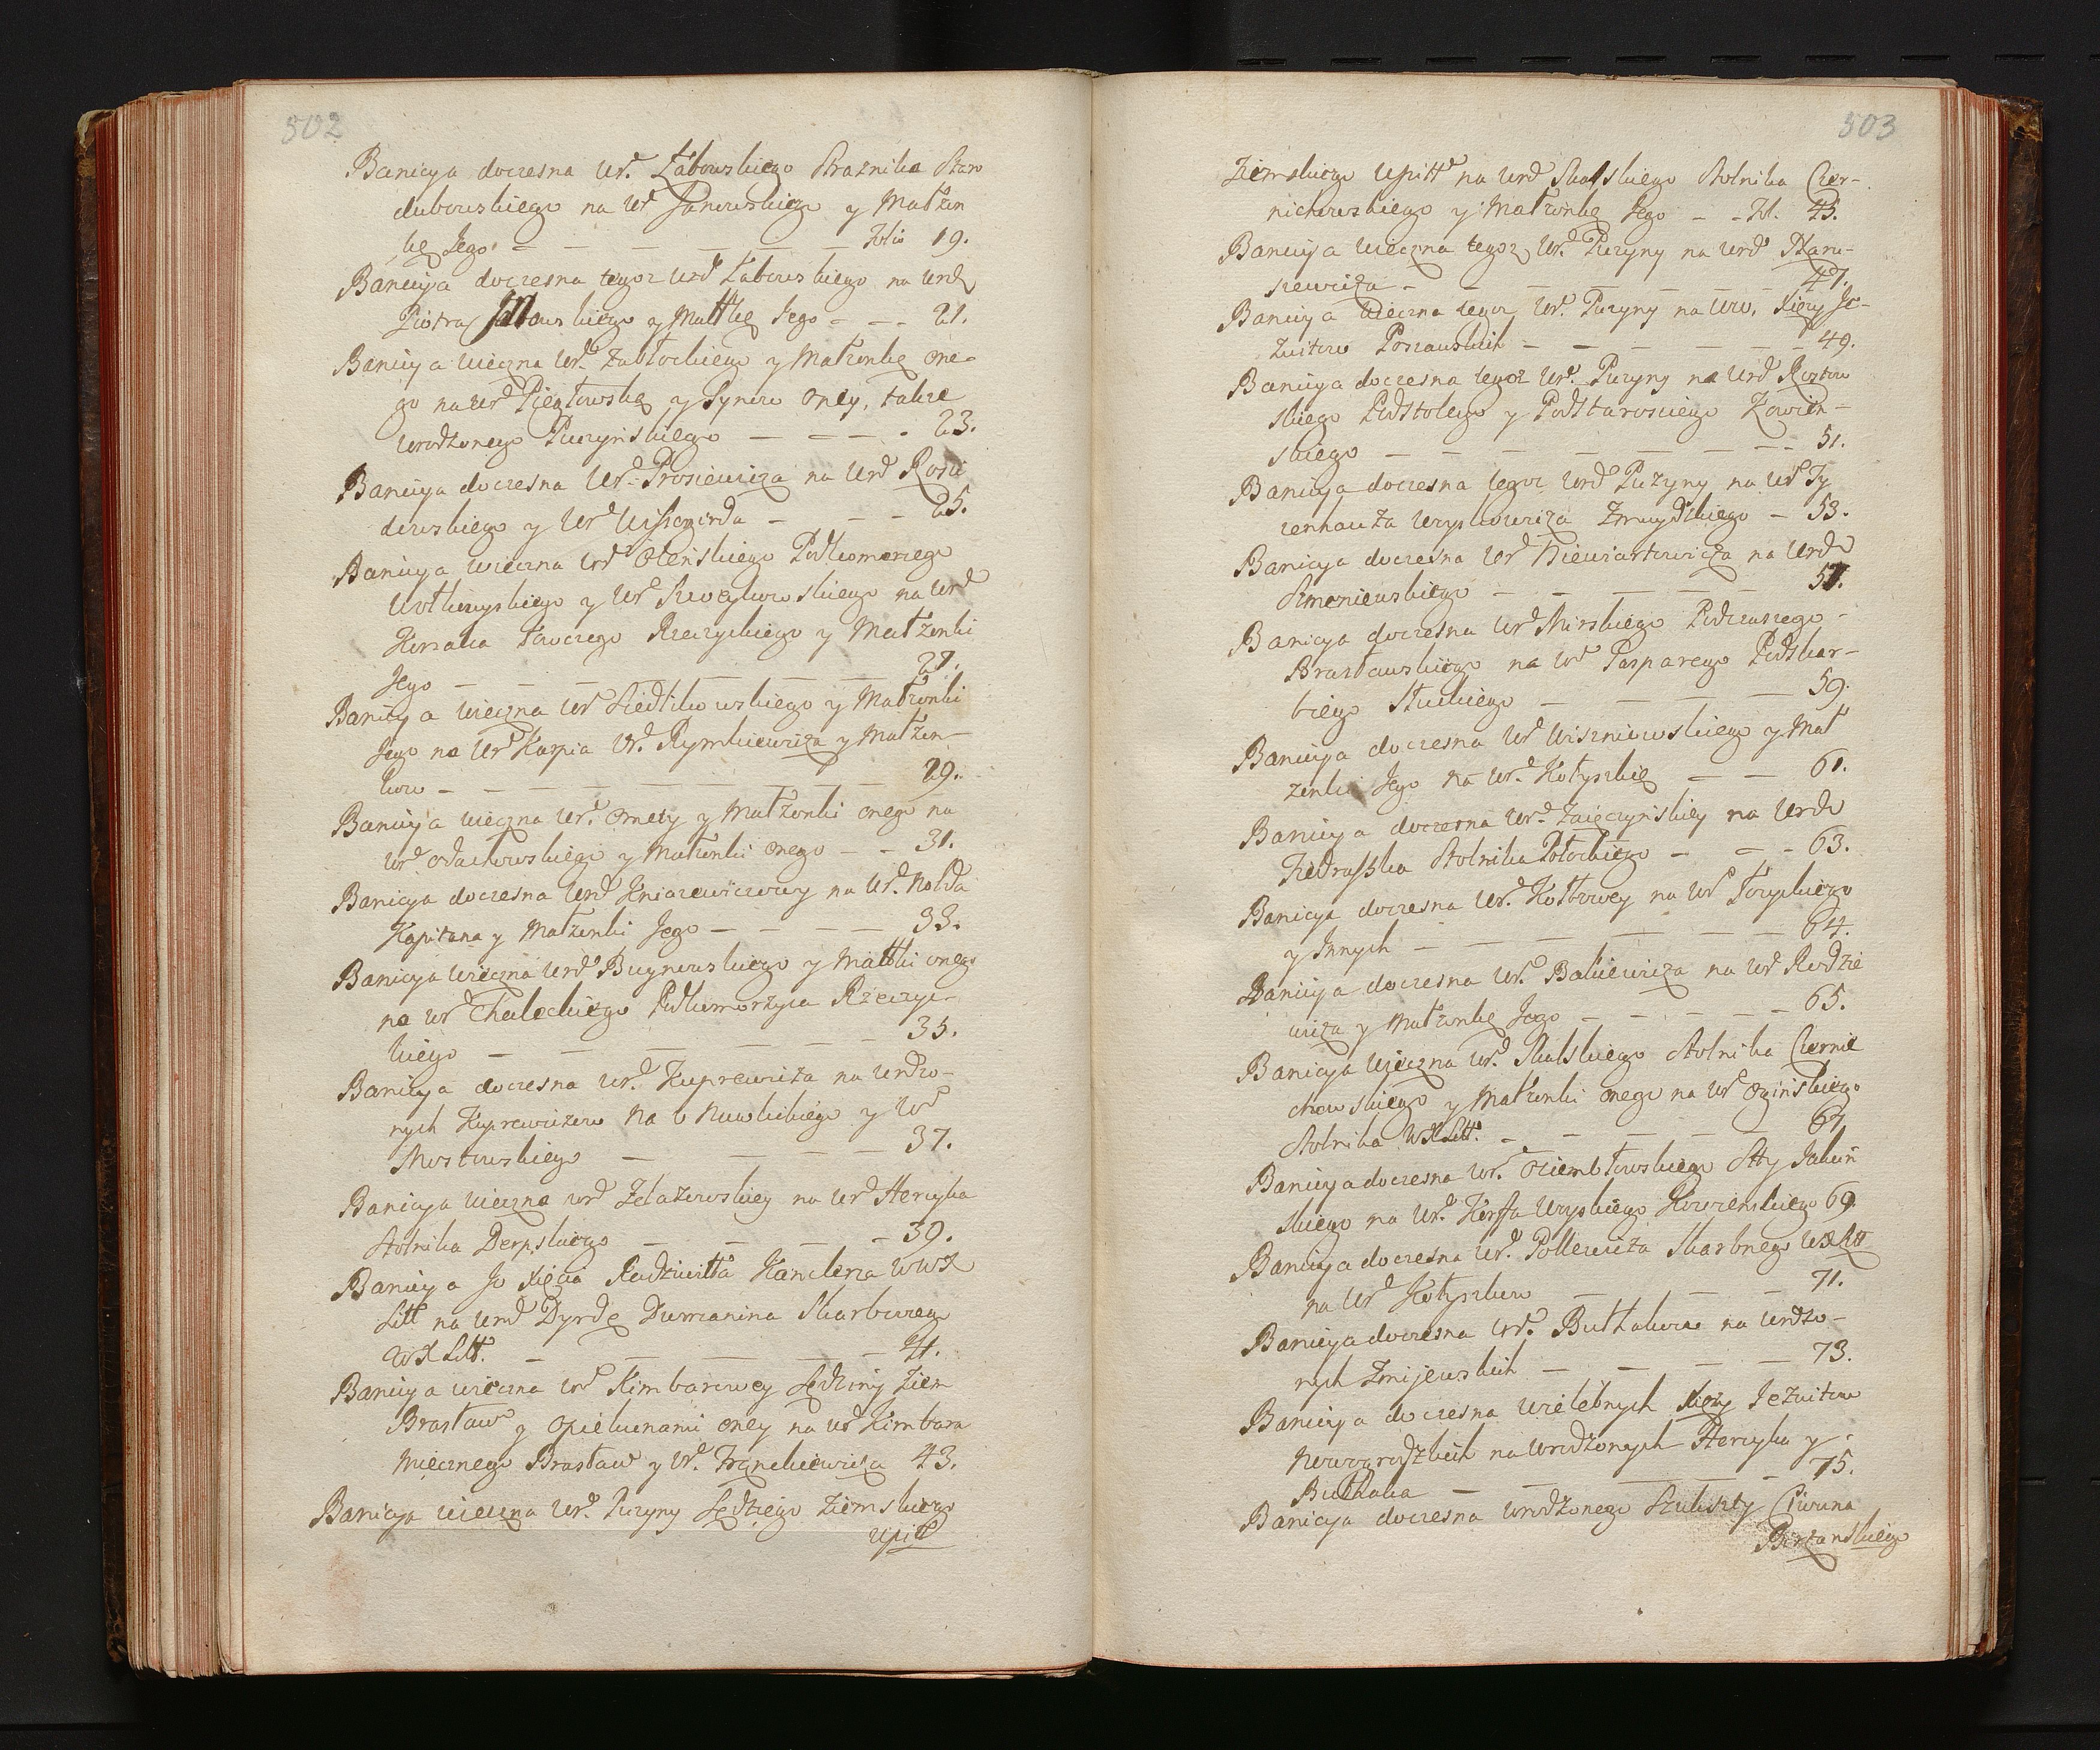 502
Banicya doczesna Ur. Łabowskiego Strażnika Staro
dubowskiego na Ur Janowskiego y Małżon
kę Jego — — — — — — — folio 19.
Banicya doczesna tegoż Urd Łabowskiego na Urdz
Piotra Jałowskiego y Małłkę Jego - - - 21.
Banicya wieczna Ur. Zabłockiego y Małżonkę one-
go na Urd Piegłowską y Synow oney, także
urodzonego Puczyńskiego — — — - 23.
Banicya doczesna Urd Prosiewicza na Urd Rosu
dowskiego y Urd Wissogirda — — - 25.
Banicya wieczna Urd Oleńskiego Podkomorzego
Wołkowyskiego y Ur na Urd
Korsaka Łowczego Rzeczyckiego y Małżonki
Jego — — — — — — 27.
Banicya wieczna Ur Siedlikowskiego y Małżonki
Jego na Ur Karpia Ur. Rymkiewicza y Małżon-
kow — — — — — — — 29.
Banicya wieczna Ur. Omety y Małżonki onego na
Urd Odachowskiego y Małżonki onego - - 31.
Banicya doczesna Urd Kniazewiczowy na Urd Nolda
Kapitana y Małżonki Jego — — — — 33.
Banicya wieczna Urd Buynowskiego y Małłki onego
na Ur Chaleckiego Podkomorzyca Rzeczyc-
kiego — — — — — — 35.
Banicya doczesna Urd Kuprewicza na Urdzo-
nych Kuprewiczow na y Ur
Mostowskiego — — — — 37.
Banicya wieczna Urd Zelazowskiey na Urd Hercyka
Stolnika Derpskiego — — — - 39.
Banicya Jo Xięcia Radziwiłła Kanclerza WWX
Litt na Urd Dyrdę Dworzanina Skarbowego
WX Litt. — — — — — — 41.
Banicya wieczna Ur Kimbarowey Sędziny Ziem
Brasław y Opiekunami oney na Ur Kimbara
Miecznego Brasław y Ur. Franckiewicza 43.
Banicya wieczna Ur. Puzyny Sędziego Ziemskiego
Upitt
503
Ziemskiego Upitt na Urd Skalskiego Stolnika Czer-
nichowskiego y Małżonkę Jego - - fol. 45.
Banicya wieczna tegoż Ur. Puzyny na Urd Stani-
szewicza — — — — — — — 47.
Banicya wieczna tegoż Ur. Puzyny na Uro. Xięży Je-
zuitow Poszawskich — — — — — 49.
Banicya doczesna tegoż Ur. Puzyny na Urd Rostow
skiego Podstolego y Podstarosciego Kowień-
skiego — — — — — — — 51.
Banicya doczesna tegoż Urd Puzyny na Ur Ty
zenhauza Uryskowicza Zmuydzkiego — 53.
Banicya doczesna Urd Niewiarowicza na Urdo
Simoniewskiego — — — — — 57.
Banicya doczesna Ur Mirskiego Podczaszego
Brasławskiego na Ur Parparego Podskar-
biego Słuckiego — — — — 59.
Banicya doczesna Ur Wiszniewskiego y Mał
zonki Jego na Ur. Kotyszkię — — 61.
Banicya doczesna Ur. Zaięczyńskiey na Urdo
Fiedraszka Stolnika Połockiego — — - 63.
Banicya doczesna Ur. Kostrowey na Ur Toryckiego
y Innych — — — — — — 64.
Banicya doczesna Ur. Bakiewicza na Ur Rodzie
wicza y Małżonkę Jego — — — — — 65.
Banicya wieczna Ur. Skalskiego Stolnika Czernie
chowskiego y Małżonki onego na Ur Ogińskiego
Stolnika WXLitt. — — — — — 67.
Banicya doczesna Ur. Oziembłowskiego Stty Jakuń
skiego na Ur. Korffa Uryskiego Kowienskiego 69.
Banicya doczesna Ur. Pollewicza Skarbnego WXLitt
na Ur Kotyszkow — — — — 71.
Banicya doczesna Ur. Bułhakow na Urdzo-
nych Zmijewskich — — — — 73.
Banicya doczesna Wielebnych Xięży Jezuitow
Nowogrodzkich na Urodzonych Hercyka y
Bułhaka — — — — — 75.
Banicya doczesna urodzonego Szukszty Ciwuna
Birzanskiego